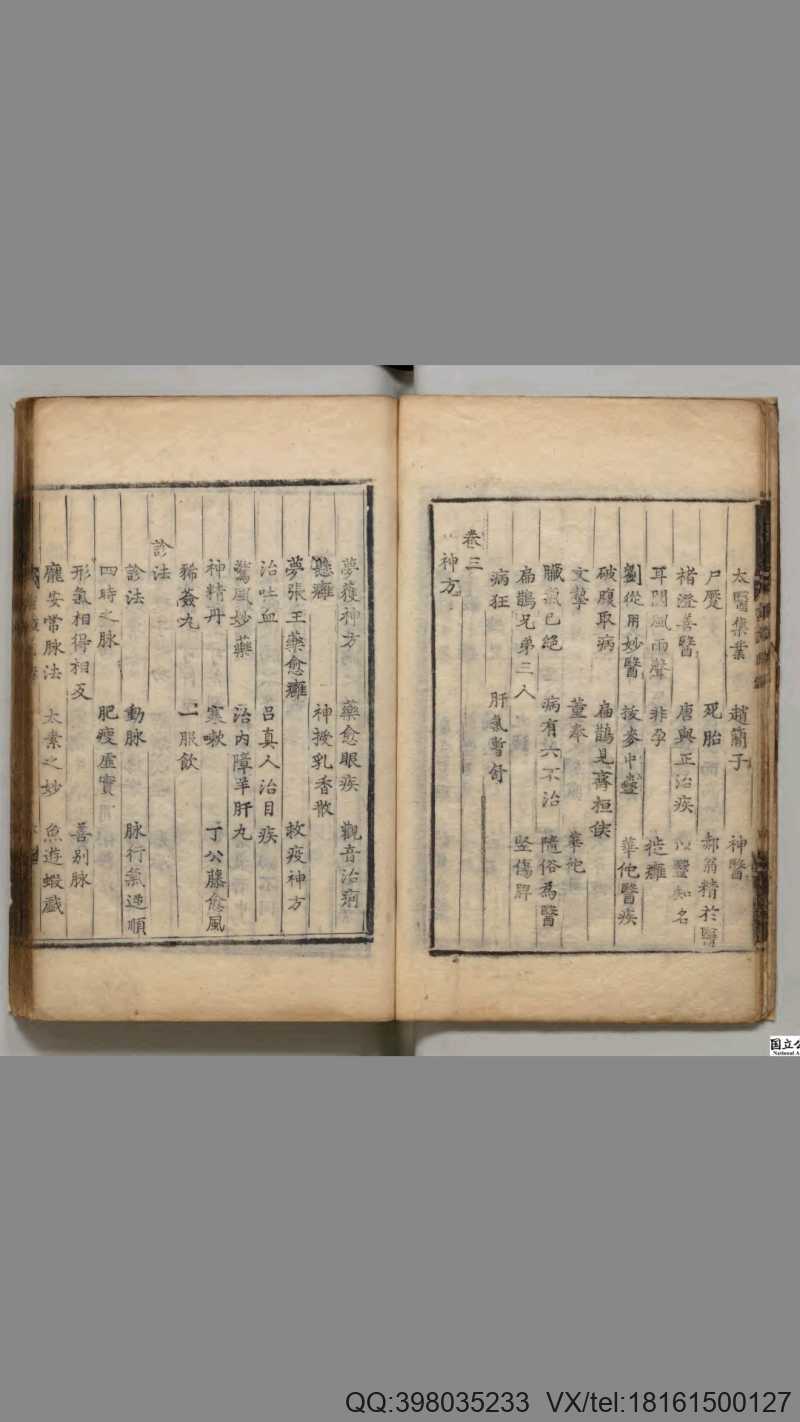 太醫集業 趙簡子 神醫
尸蹷 死胎 郝翁精於醫
褚澄善醫 唐與正治疾 以醫知名
耳聞風雨聲 非孕 徙癰
劉從用妙醫 救麥中蠱 華佗醫疾
破腹取病 扁鵲見齊桓侯
文摯 董奉 華佗
臟氣已絕 病有六不治 隨俗為醫
扁鵲兄弟三人
病狂 肝氣暫舒 堅傷脾
卷三
神方
夢獲神方 藥愈眼疾 觀音治痢
懸癰 神授乳香散
夢張王藥愈癰 救疫神方
治吐血 呂真人治目疾
驚風妙藥 治內障羊肝丸
神精丹 寒嗽 丁公藤愈風
豨薟丸 一服飲
診法
診法 動脉 脉行氣逆順
四時之脉 肥瘦虛實
形氣相得相反 善别脉
龐安常脉法 太素之妙 魚遊蝦戲
国立公
National A
QQ:398035233 VX/tel:18161500127